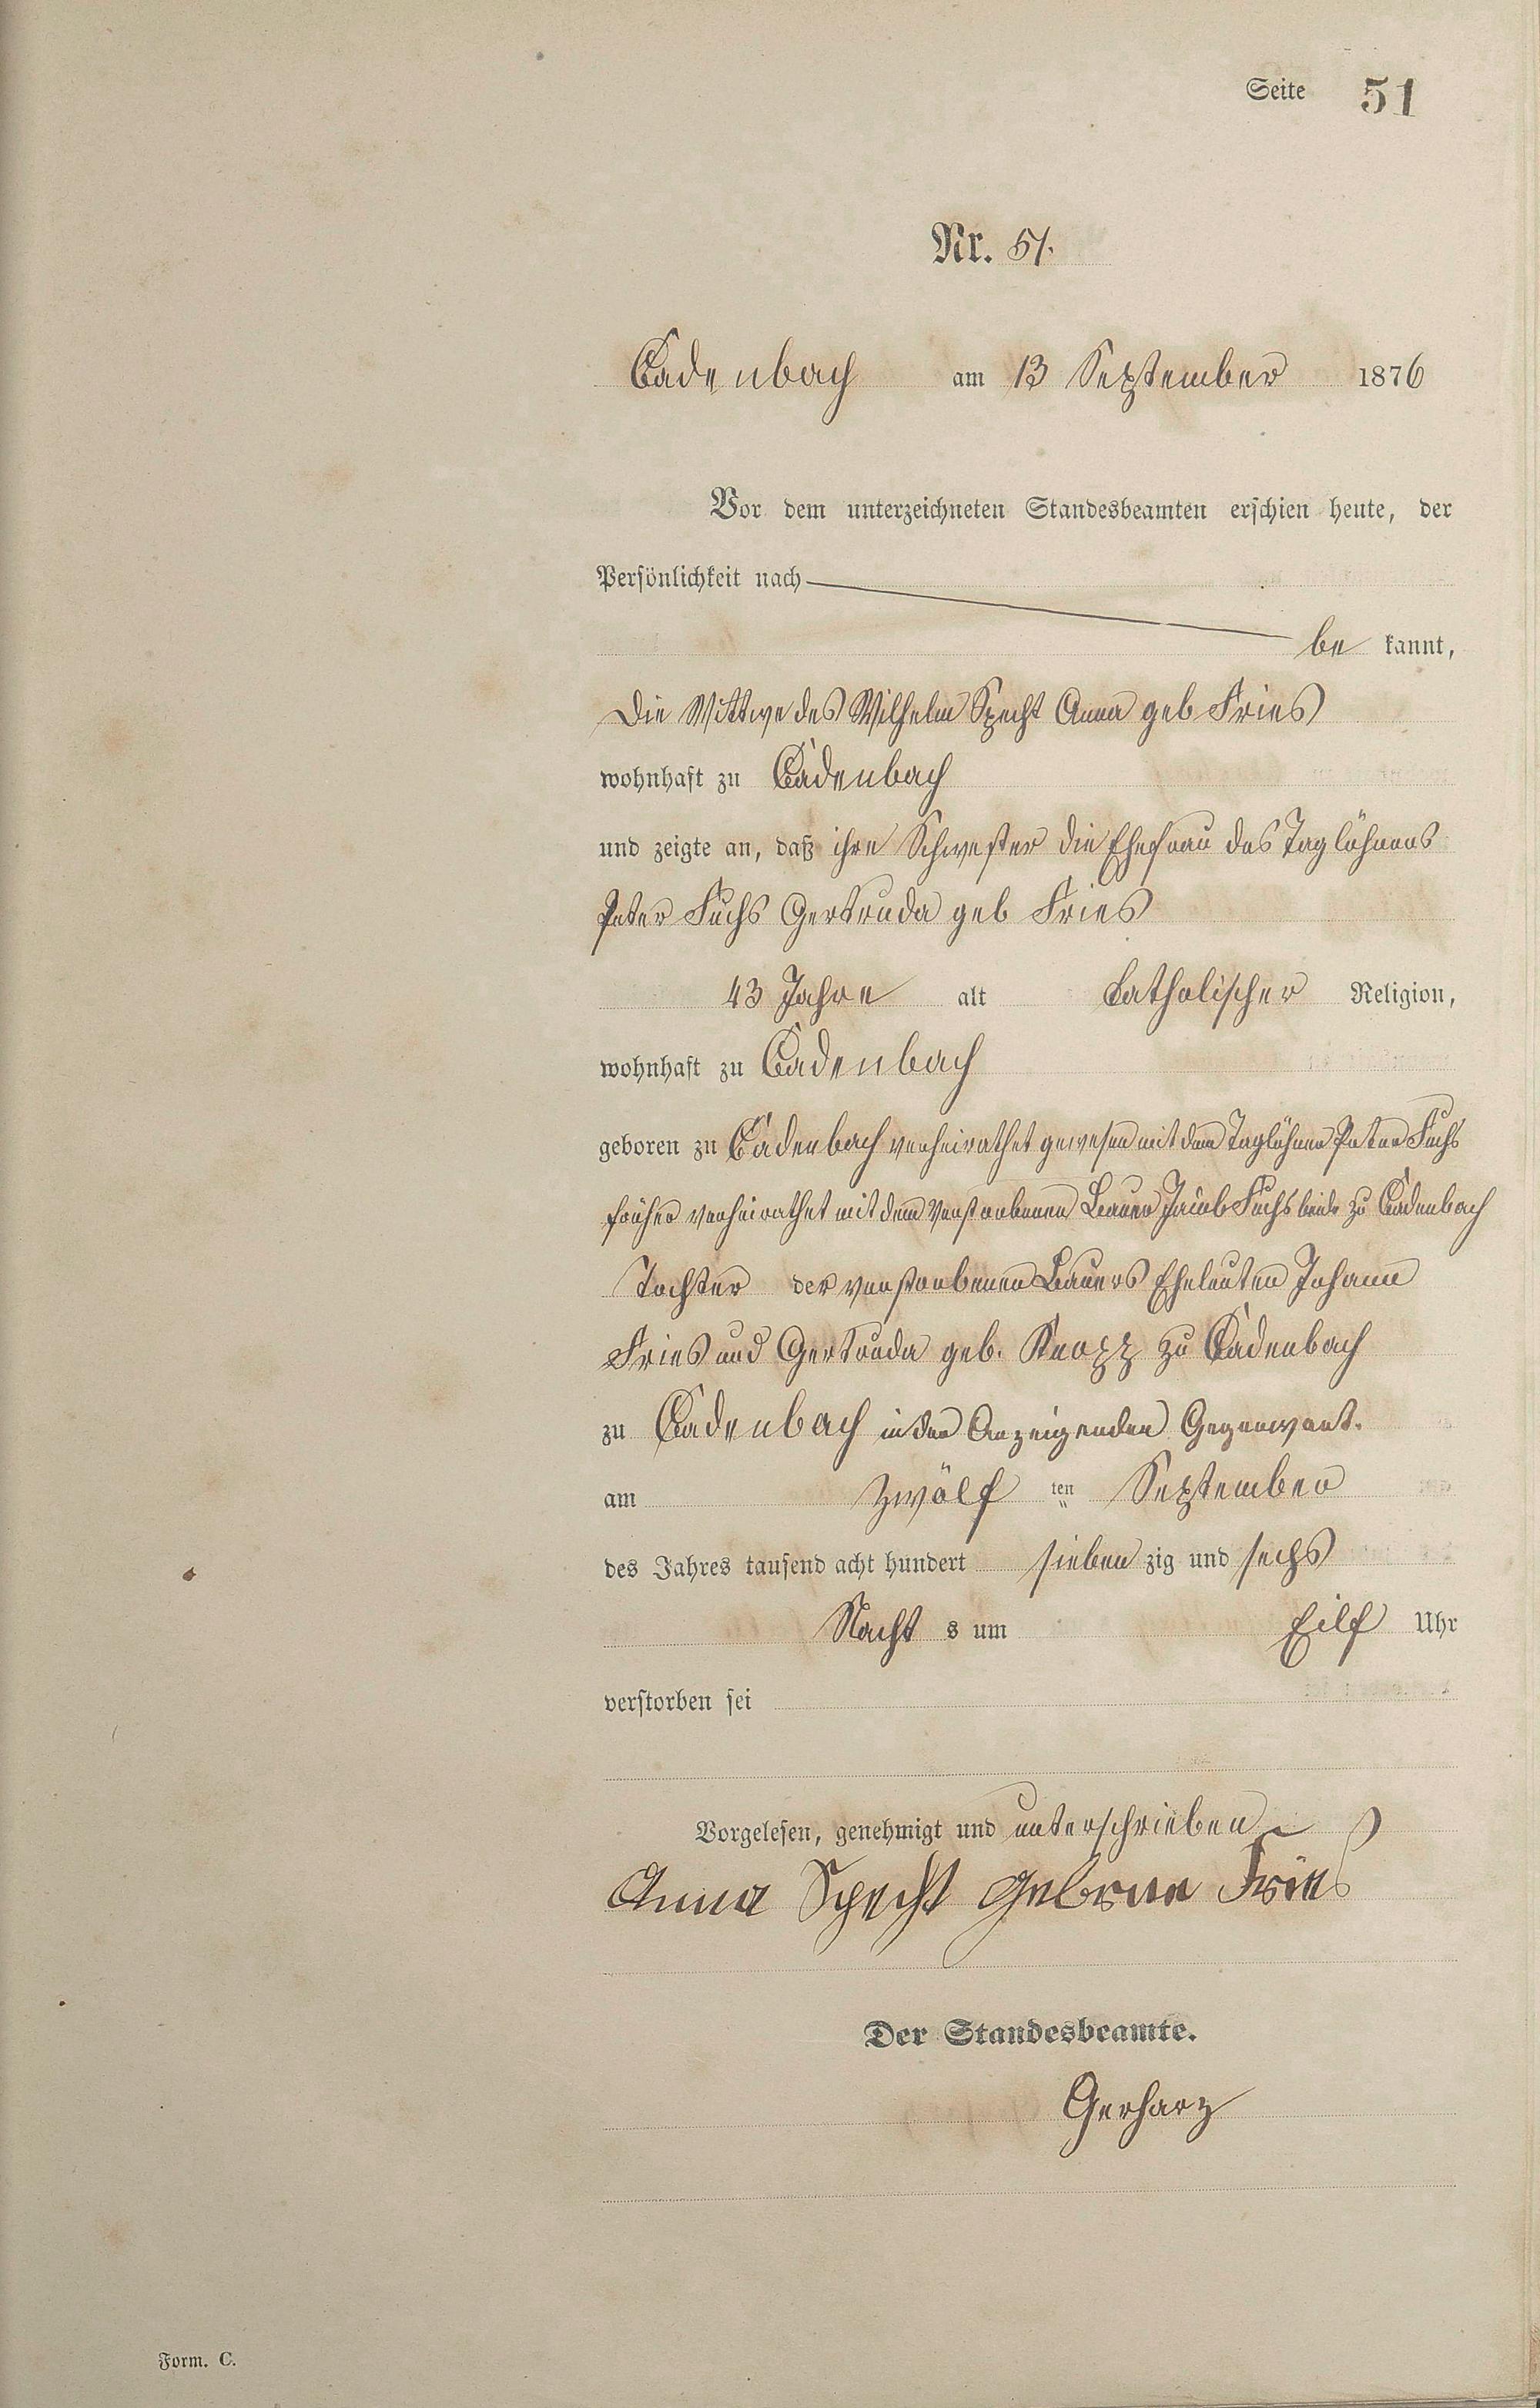 Seite 51
Nr. 51.
Cadenbach am 13 September 1876
Vor dem unterzeichneten Standesbeamten erschien heute, der
Persönlichkeit nach
be kannt,
die Wittwe des Wilhelm Specht Anna geb Fries
wohnhaft zu Cadenbach
und zeigte an, daß ihre Schwester die Ehefrau des Taglöhners
Peter Fuchs Gertruda geb Fries
43 Jahre alt catholischer Religion,
wohnhaft zu Cadenbach
geboren zu Cadenbach verheirathet gewesen mit dem Taglöhner Peter Fuchs
früher verheirathet mit dem verstorbenen Bauer Jacob Fuchs beide zu Cadenbach
Tochter der verstorbenen Bauers Eheleuten Johann
Fries und Gertruda geb. Knopp zu Cadenbach
zu Cadenbach in der Anzeigenden Gegenwart.
am zwölf ten September
des Jahres tausend acht hundert sieben zig und sechs
Nacht s um Eilf Uhr
verstorben sei
Vorgelesen, genehmigt und unterschrieben
Anna Specht geborne Fries
Der Standesbeamte.
Gerharz
Form. C.